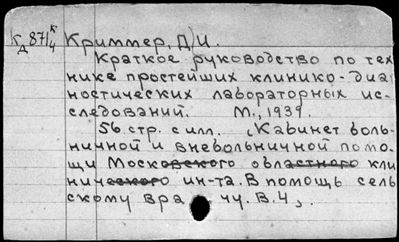 К 871 к
д 4 Криммер, Д)И.
Краткое руководство по тех
нике простейших клинико-диаг
ностических лабораторных ис-
следований. М., 1939.
56 стр. с илл. (Кабинет боль-
ничной и внебольничной помо-
щи Московского областного кли
нического ин-та. В помощь сель
скому врачу. В.4).